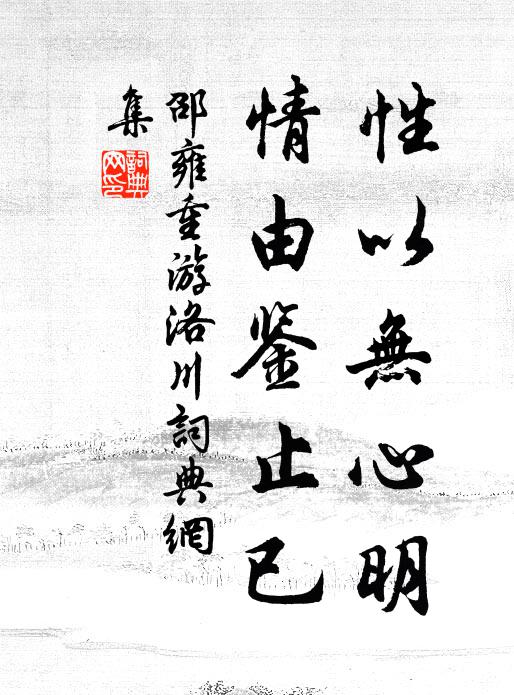 性以無心明
情由鉴止已
邵雍重游洛川詞典網
集
詞典
网印